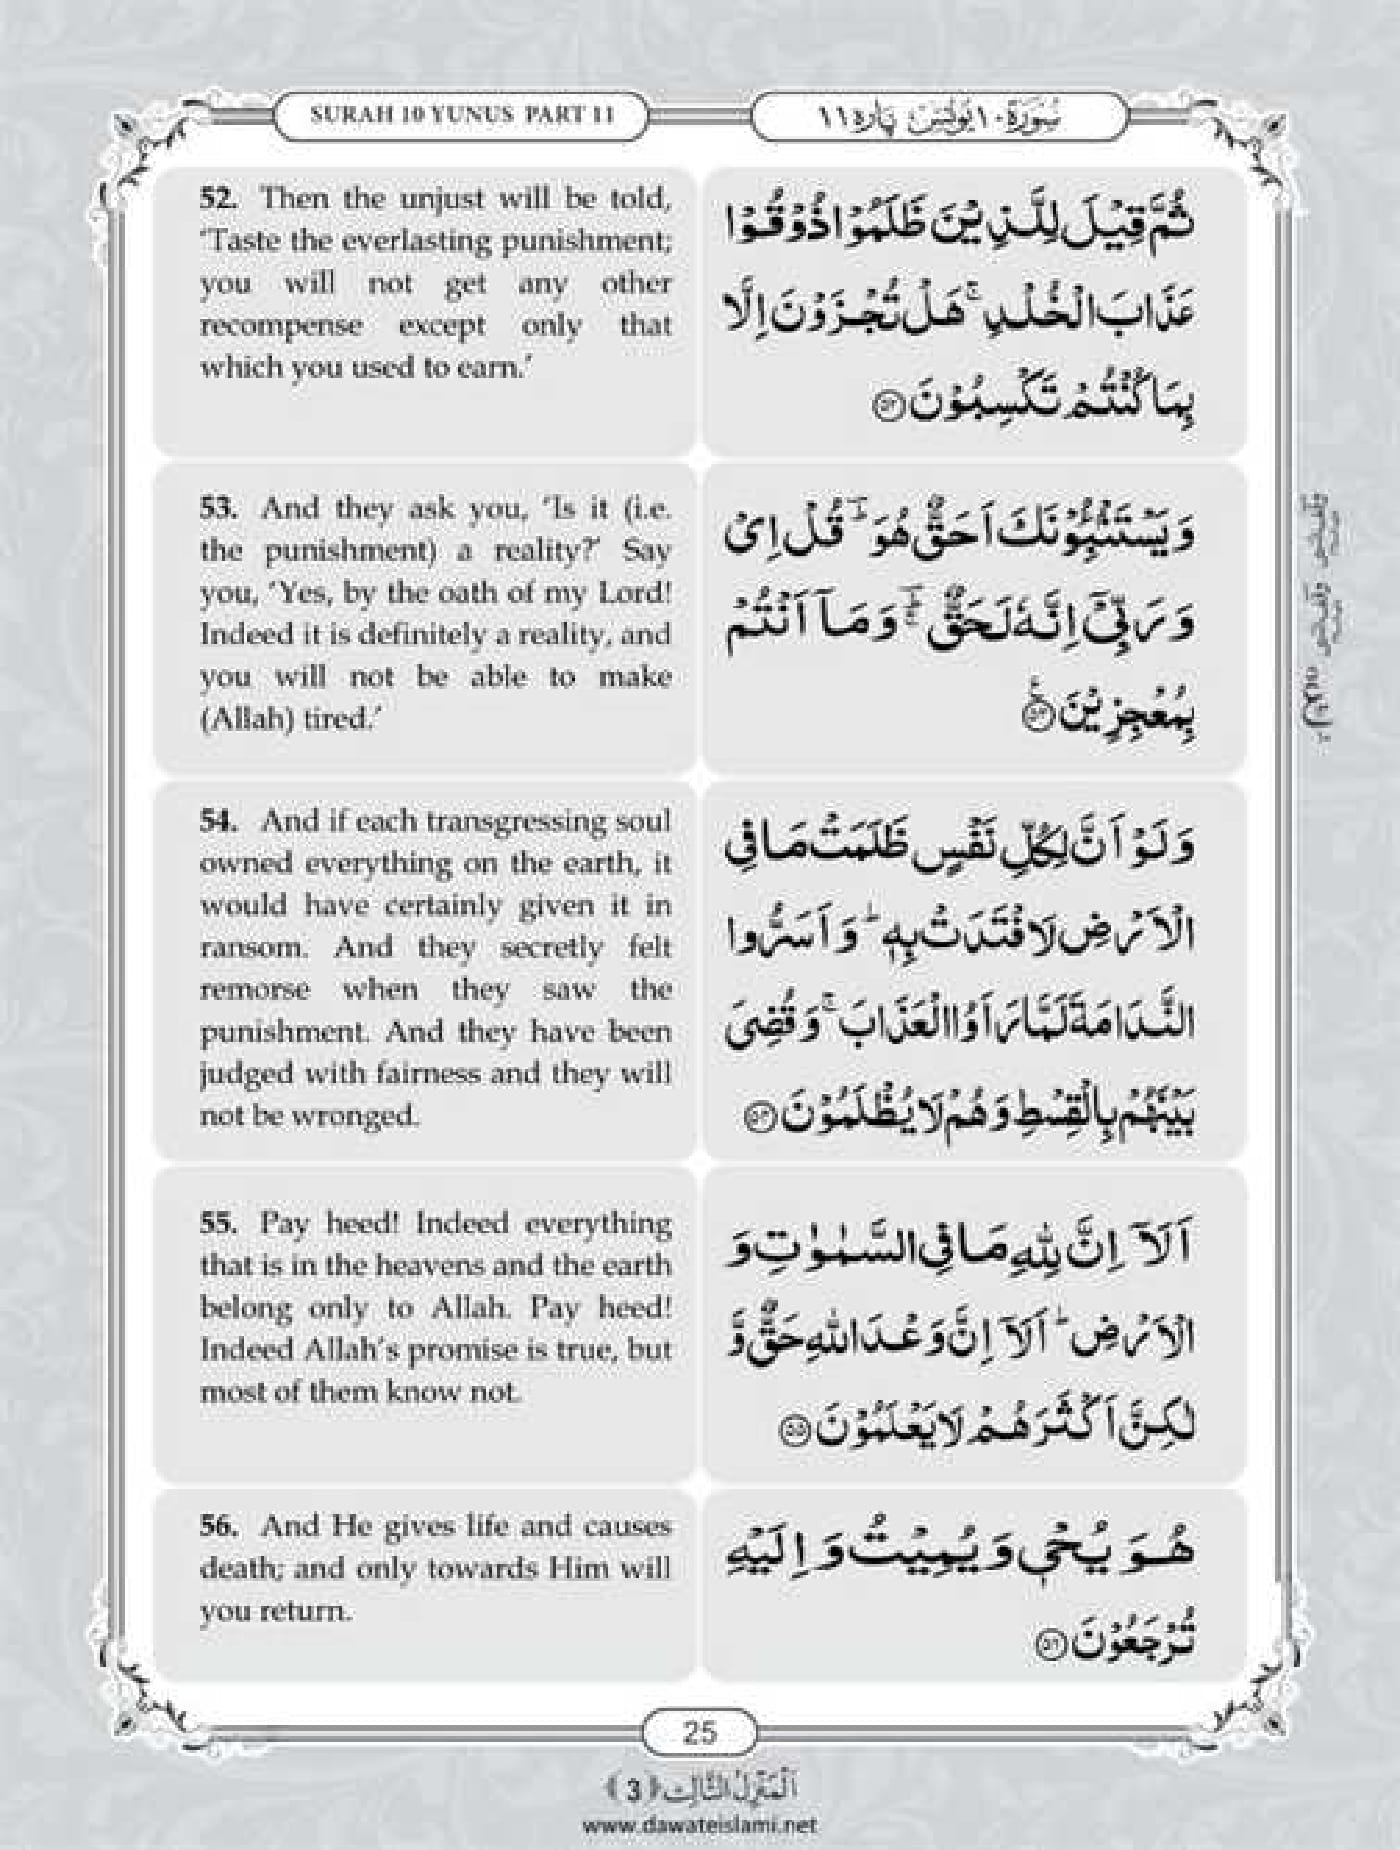 SURAH 10 YUNUS PART 11
سُوْرَة ١٠ يُونُس پاره ١١
52. Then the unjust will be told,
'Taste the everlasting punishment;
you will not get any other
recompense except only that
which you used to earn.'
ثُمَّ قِيْلَ لِلَّذِيْنَ ظَلَمُوْا ذُوْقُوْا
عَذَابَ الْخُلْدِ ۚ هَلْ تُجْزَوْنَ اِلَّا
بِمَا كُنْتُمْ تَكْسِبُوْنَ ۵۲
53. And they ask you, 'Is it (i.e.
the punishment) a reality?' Say
you, 'Yes, by the oath of my Lord!
Indeed it is definitely a reality, and
you will not be able to make
(Allah) tired.'
وَيَسْتَنْۢبِـُٔوْنَكَ اَحَقٌّ هُوَ ؕ قُلْ اِیْ
وَ رَبِّیْۤ اِنَّهٗ لَحَقٌّ ؔؕ وَمَاۤ اَنْتُمْ
بِمُعْجِزِيْنَ ۵۳
54. And if each transgressing soul
owned everything on the earth, it
would have certainly given it in
ransom. And they secretly felt
remorse when they saw the
punishment. And they have been
judged with fairness and they will
not be wronged.
وَلَوْ اَنَّ لِكُلِّ نَفْسٍ ظَلَمَتْ مَا فِی
الْاَرْضِ لَافْتَدَتْ بِهٖ ؕ وَاَسَرُّوا
النَّدَامَةَ لَمَّا رَاَوُا الْعَذَابَ ۚ وَقُضِیَ
بَيْنَهُمْ بِالْقِسْطِ وَهُمْ لَا يُظْلَمُوْنَ ۵۴
55. Pay heed! Indeed everything
that is in the heavens and the earth
belong only to Allah. Pay heed!
Indeed Allah's promise is true, but
most of them know not.
اَلَاۤ اِنَّ لِلّٰهِ مَا فِی السَّمٰوٰتِ وَ
الْاَرْضِ ؕ اَلَاۤ اِنَّ وَعْدَ اللّٰهِ حَقٌّ وَّ
لٰكِنَّ اَكْثَرَهُمْ لَا يَعْلَمُوْنَ ۵۵
56. And He gives life and causes
death; and only towards Him will
you return.
هُوَ يُحْیٖ وَيُمِيْتُ وَاِلَيْهِ
تُرْجَعُوْنَ ۵۶
25
اَلْمَنْزِلُ الثَّالِث ﴿3﴾
www.dawateislami.net